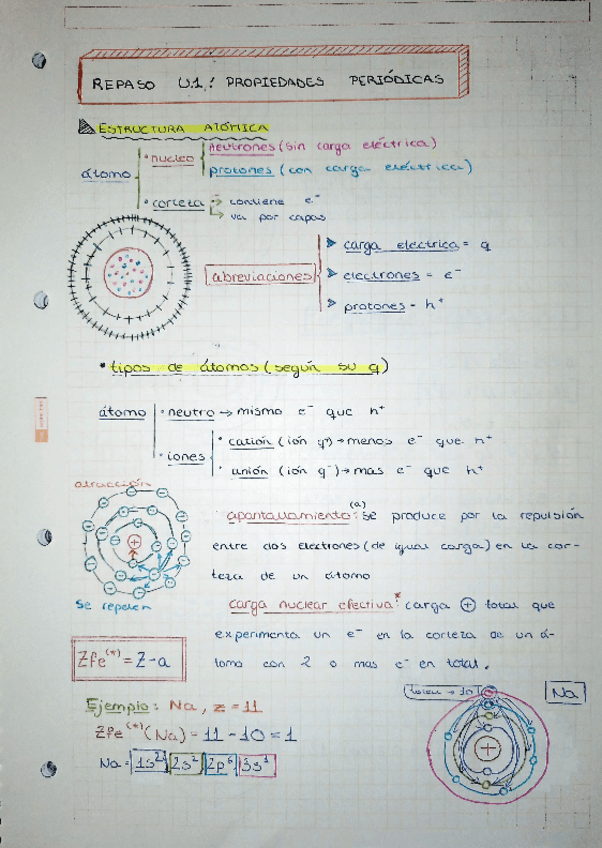 REPASO U.1: PROPIEDADES PERIÓDICAS
ESTRUCTURA ATÓMICA
átomo
• nucleo
neutrones (sin carga eléctrica)
protones (con carga eléctrica)
• corteza → contiene e⁻
↳ va por capas
abreviaciones
➤ carga electrica = q
➤ electrones = e⁻
➤ protones = h⁺
• tipos de átomos (según su q)
átomo
• neutro → mismo e⁻ que h⁺
• iones
• catión (ión q⁺) → menos e⁻ que h⁺
• anión (ión q⁻) → mas e⁻ que h⁺
atracción
se repelen
apantallamiento (a): se produce por la repulsión
entre dos electrones (de igual carga) en la cor-
teza de un átomo
carga nuclear efectiva*: carga ⊕ total que
experimenta un e⁻ en la corteza de un á-
tomo con 2 o mas e⁻ en total.
Zfe(*) = Z - a
Ejemplo: Na, z = 11
Zfe(*) (Na) = 11 - 10 = 1
Na = 1s² 2s² 2p⁶ 3s¹
→ 10
Na